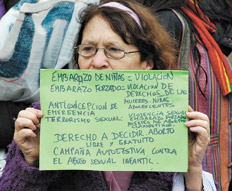 EMBARAZO DE NIÑAS = VIOLACION
EMBARAZO FORZADO = VIOLACION DE
DERECHOS DE LAS
MUJERES, NIÑAS
ADOLESCENTES
ANTICONCEPCION DE
EMERGENCIA
TERRORISMO SEXUAL:
VIOLENCIA SEXUAL
EMBARAZO FORZADO
DERECHO A DECIDIR ABORTO
LIBRE Y GRATUITO
CAMPAÑA AUTOGESTIVA CONTRA
EL ABUSO SEXUAL INFANTIL.